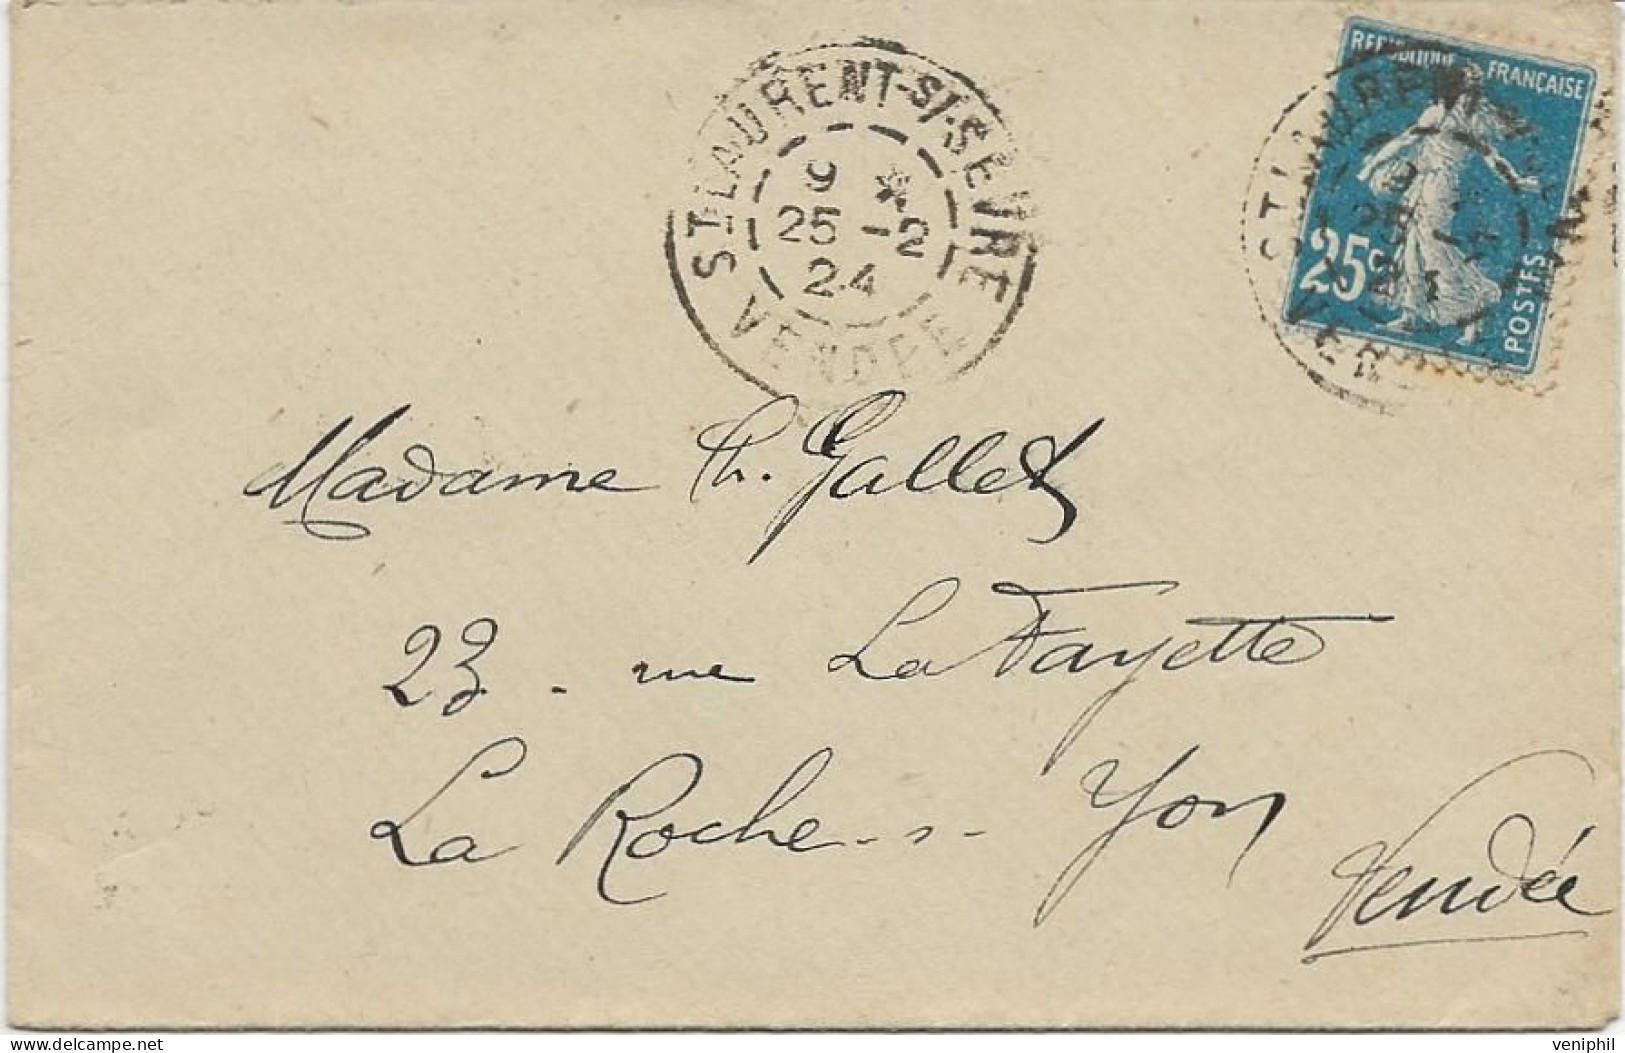 ST LAURENT-ST-SEVRE
9 *
25 -2
24
VENDEE
REPUBLIQUE FRANÇAISE
25c
POSTES
Madame Th. Gallet
23 - rue La Fayette
La Roche-s-Yon
Vendée
veniphil